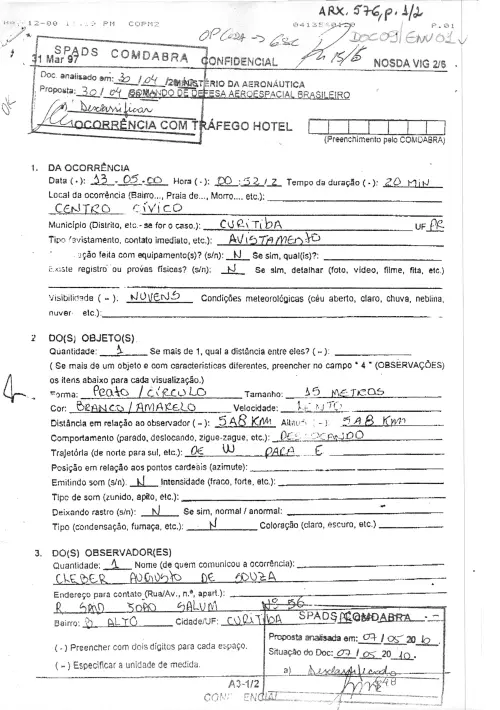 ARX. 576, p. 1/2
12-00 PM COPM2
P.01
DOC 09/ENV 01
SPADS COMDABRA
31 Mar 97
CONFIDENCIAL
NOSDA VIG 2/6
Doc. analisado em: 30 / 04 /
MINISTÉRIO DA AERONÁUTICA
Proposta: 30/04
COMANDO DE DEFESA AEROESPACIAL BRASILEIRO
Desclassificar
OK
OCORRÊNCIA COM TRÁFEGO HOTEL
(Preenchimento pelo COMDABRA)
1. DA OCORRÊNCIA
Data ( - ): 13 . 05 . 00 Hora ( - ): 00 : 52 / Z Tempo da duração ( - ): 20 MIN
Local da ocorrência (Bairro..., Praia de..., Morro..., etc.):
CENTRO CÍVICO
Município (Distrito, etc.- se for o caso.): CURITIBA UF PR
Tipo (avistamento, contato imediato, etc.): AVISTAMENTO
ação feita com equipamento(s)? (s/n): N Se sim, qual(is)?:
Existe registro ou provas físicas? (s/n): N Se sim, detalhar (foto, vídeo, filme, fita, etc.)
Visibilidade ( - ): NUVENS Condições meteorológicas (céu aberto, claro, chuva, neblina,
nuvens etc.):
2 DO(S) OBJETO(S)
Quantidade: 1 Se mais de 1, qual a distância entre eles? ( - ):
( Se mais de um objeto e com características diferentes, preencher no campo " 4 " (OBSERVAÇÕES)
os itens abaixo para cada visualização.)
Forma: PRATO / CÍRCULO Tamanho: 15 METROS
Cor: BRANCO / AMARELO Velocidade: LENTO
Distância em relação ao observador ( - ): 5 A 8 KM Altitude ( - ): 5 A 8 KM
Comportamento (parado, deslocando, zigue-zague, etc.): DESLOCANDO
Trajetória (de norte para sul, etc.): DE W PARA E
Posição em relação aos pontos cardeais (azimute):
Emitindo som (s/n): N Intensidade (fraco, forte, etc.):
Tipo de som (zunido, apito, etc.):
Deixando rastro (s/n): N Se sim, normal / anormal:
Tipo (condensação, fumaça, etc.): N Coloração (claro, escuro, etc.)
3. DO(S) OBSERVADOR(ES)
Quantidade: 1 Nome (de quem comunicou a ocorrência):
CLEBER AUGUSTO DE SOUZA
Endereço para contato (Rua/Av., n.º, apart.):
R. JOÃO SALUM Nº 56
Bairro: B. ALTO Cidade/UF: CURITIBA
SPADS COMDABRA
Proposta analisada em: 07 / 05 20 10
Situação do Doc: 07 / 05 20 10.
a) Desclassificado
( - ) Preencher com dois dígitos para cada espaço.
( – ) Especificar a unidade de medida.
A3-1/2
CONFIDENCIAL